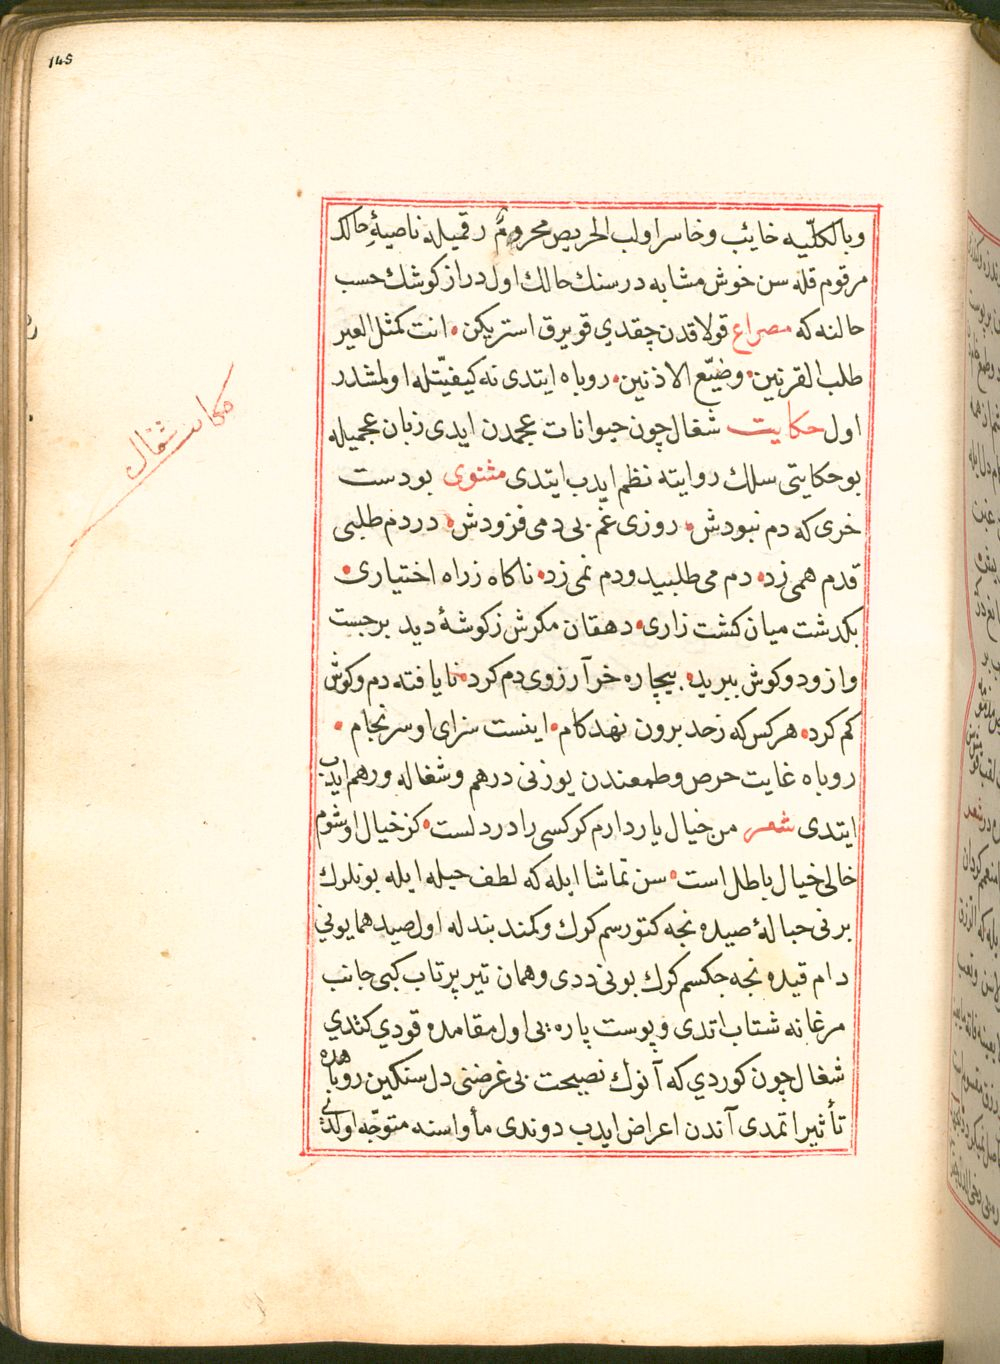 145
وبالكلّيه خائب وخاسر اولب الحريص محروم رقميله ناصيۀ حالك
مرقوم قله سن خوش مشابه در سنك حالك اول دراز كوشك حسب
حالنه كه مصراع قولاقدن چقدي قويرق استريكن انت كمثل العير
طلب القرنين وضيّع الاذنين روباه ايتدى نه كيفيّتله اولمشدر
اول حكايت شغال چون حيوانات عجمدن ايدى زبان عجميله
بو حكايتى سلك روايته نظم ايدب ايتدى مثنوى بودست
خرى كه دم نبودش روزى غم بى دمى فزودش در دم طلبى
قدم همى زد دم مى طلبيد ودم نمى زد ناكاه ز راه اختيارى
بكذشت ميان كشت زارى دهقان مكرش ز كوشۀ ديد برجست
وازو دو كوش ببريد بيچاره خر آرزوى دم كرد نايافته دم وكوش
كم كرد هر كس كه ز حد برون نهد كام اينست سزاى او سرنجام
روباه غايت حرص وطمعندن يوزنى درهم وشغاله ورهم ايدب
ايتدى شعر من خيال يار دارم كر كسى را در دلست كز خيال او شوم
خالى خيال باطل است سن تماشا ايله كه لطف حيله ايله بونلرك
برنى حبالۀ صيده نجه كتورسم كرك وكمند بندله اول صيد همايونى
دام قيده نجه جكسم كرك بونى ددى وهمان تير پرتاب كبى جانب
مرغانه شتاب اتدى و پوست پاره يى اول مقامده قودي كتدي
شغال چون كوردي كه آنوك نصيحت بى غرضنى دل سنكين روباهده
تأثير اتمدى آندن اعراض ايدب دوندى مأواسنه متوجّه اولدى
حكايت شغال